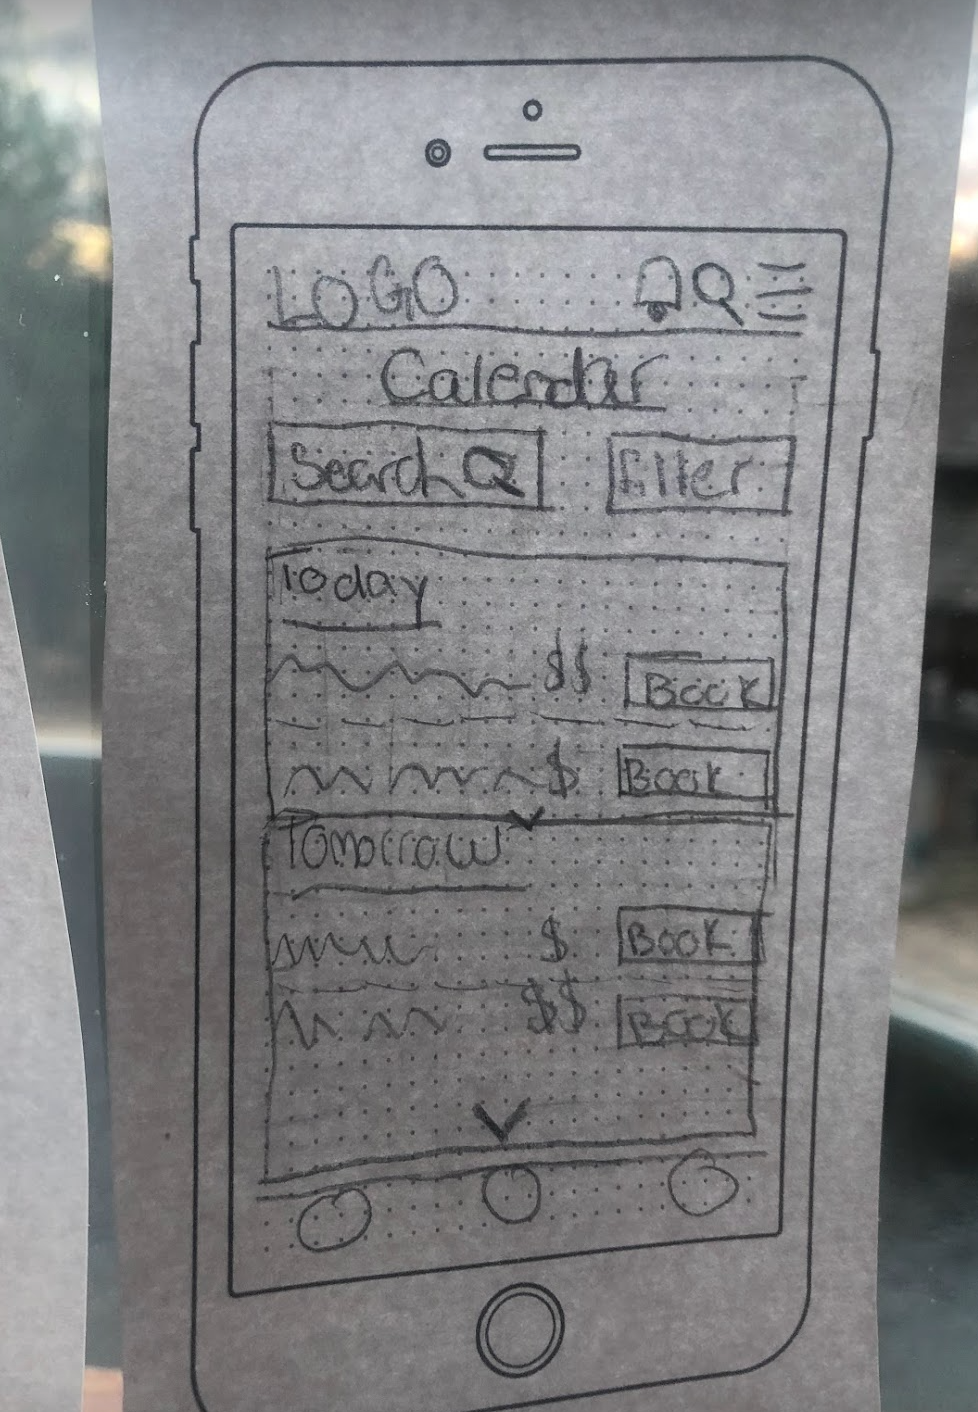 LOGO
Calendar
Search Filter
Today
$$ Book
$ Book
Tomorrow
$ Book
$$ Book